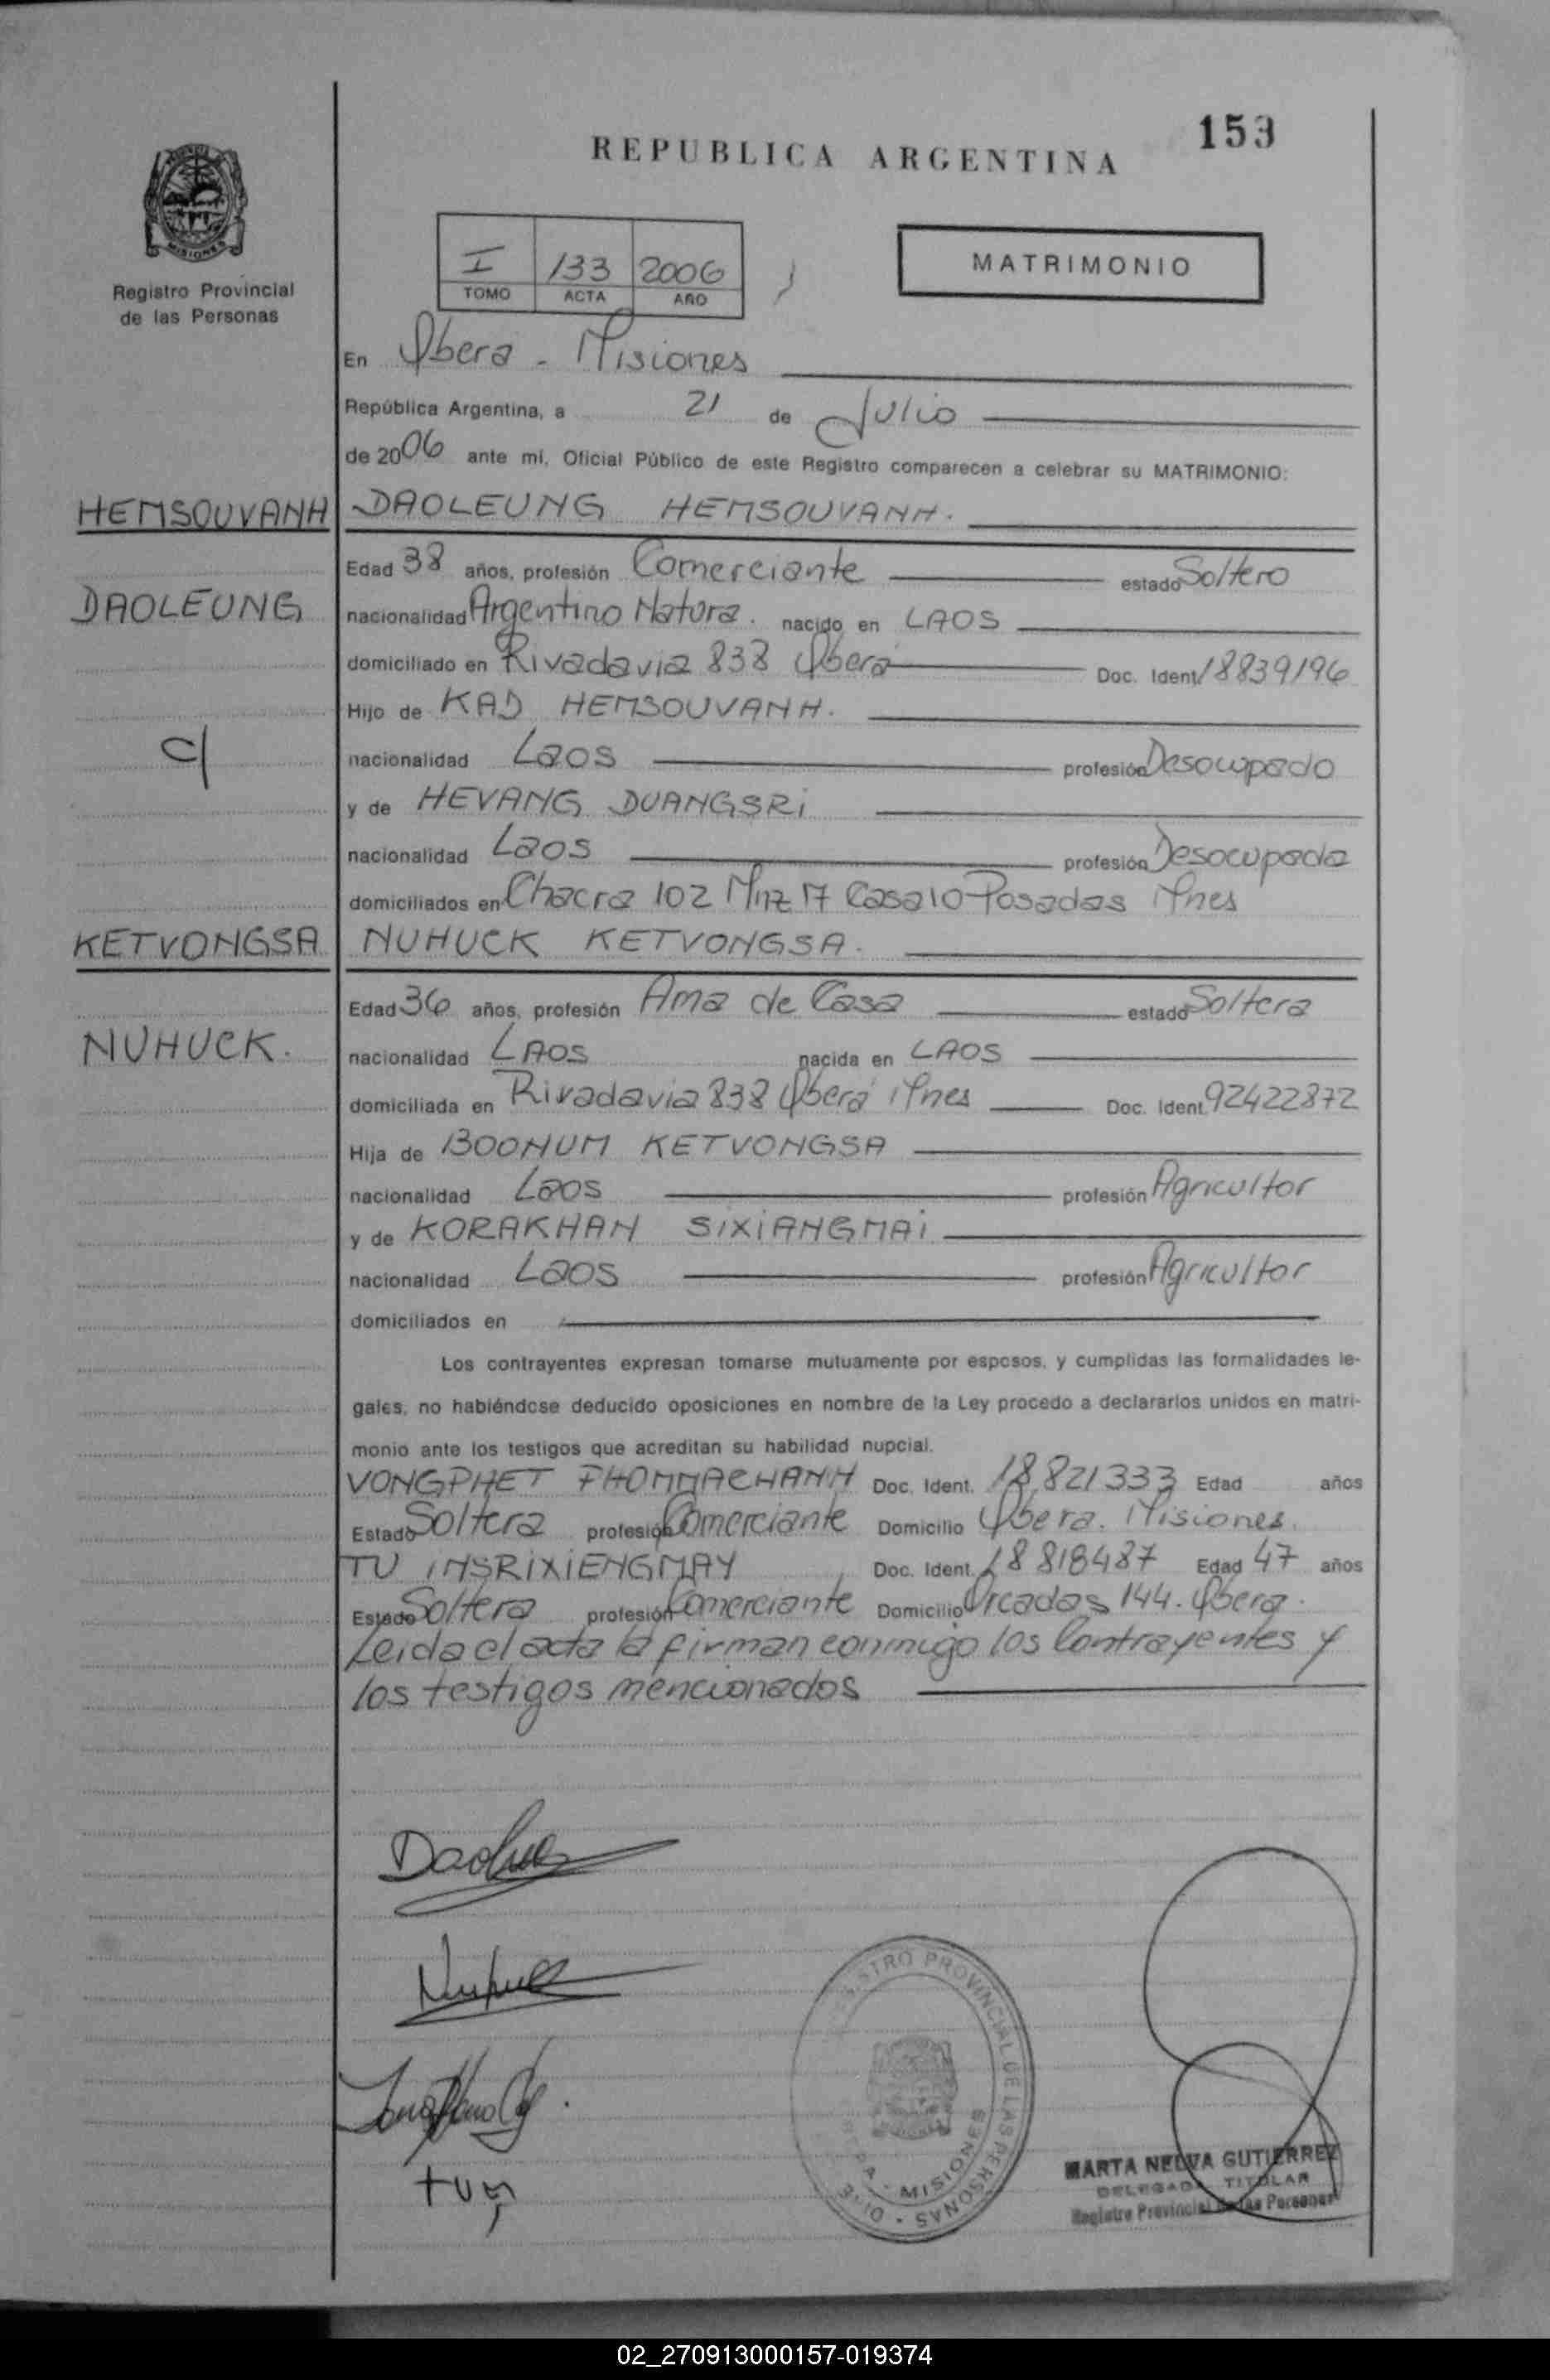 153
REPUBLICA ARGENTINA
MISIONES
Registro Provincial
de las Personas
I 133 2006
TOMO ACTA AÑO
MATRIMONIO
En Obera - Misiones
República Argentina, a 21 de Julio
de 2006 ante mi, Oficial Público de este Registro comparecen a celebrar su MATRIMONIO:
HEMSOUVANH DAOLEUNG HEMSOUVANH.
Edad 38 años, profesión Comerciante estado Soltero
DAOLEUNG nacionalidad Argentino Natura. nacido en LAOS
domiciliado en Rivadavia 838 Oberá Doc. Ident. 18839196
Hijo de KAD HEMSOUVANH.
c/ nacionalidad Laos profesión Desocupado
y de HEVANG DUANGSRI
nacionalidad Laos profesión Desocupada
domiciliados en Chacra 102 Mnz 17 Casa 10 Posadas Mnes
KETVONGSA NUHUCK KETVONGSA.
Edad 36 años, profesión Ama de Casa estado Soltera
NUHUCK. nacionalidad LAOS nacida en LAOS
domiciliada en Rivadavia 838 Oberá Mnes Doc. Ident. 92422872
Hija de BOONUM KETVONGSA
nacionalidad Laos profesión Agricultor
y de KORAKHAN SIXIANGMAI
nacionalidad Laos profesión Agricultor
domiciliados en
Los contrayentes expresan tomarse mutuamente por esposos, y cumplidas las formalidades le-
gales, no habiéndose deducido oposiciones en nombre de la Ley procedo a declararlos unidos en matri-
monio ante los testigos que acreditan su habilidad nupcial.
VONGPHET PHOMMACHANH Doc. Ident. 18.821333 Edad años
Estado Soltera profesión Comerciante Domicilio Obera. Misiones.
TU INSRIXIENGMAY Doc. Ident. 18818487 Edad 47 años
Estado Soltera profesión Comerciante Domicilio Orcadas 144. Obera.
Leida el acta la firman conmigo los Contrayentes y
los testigos mencionados
REGISTRO PROVINCIAL DE LAS PERSONAS
MISIONES
MARTA NELVA GUTIERREZ
DELEGADA TITULAR
Registro Provincial de las Personas
02_270913000157-019374